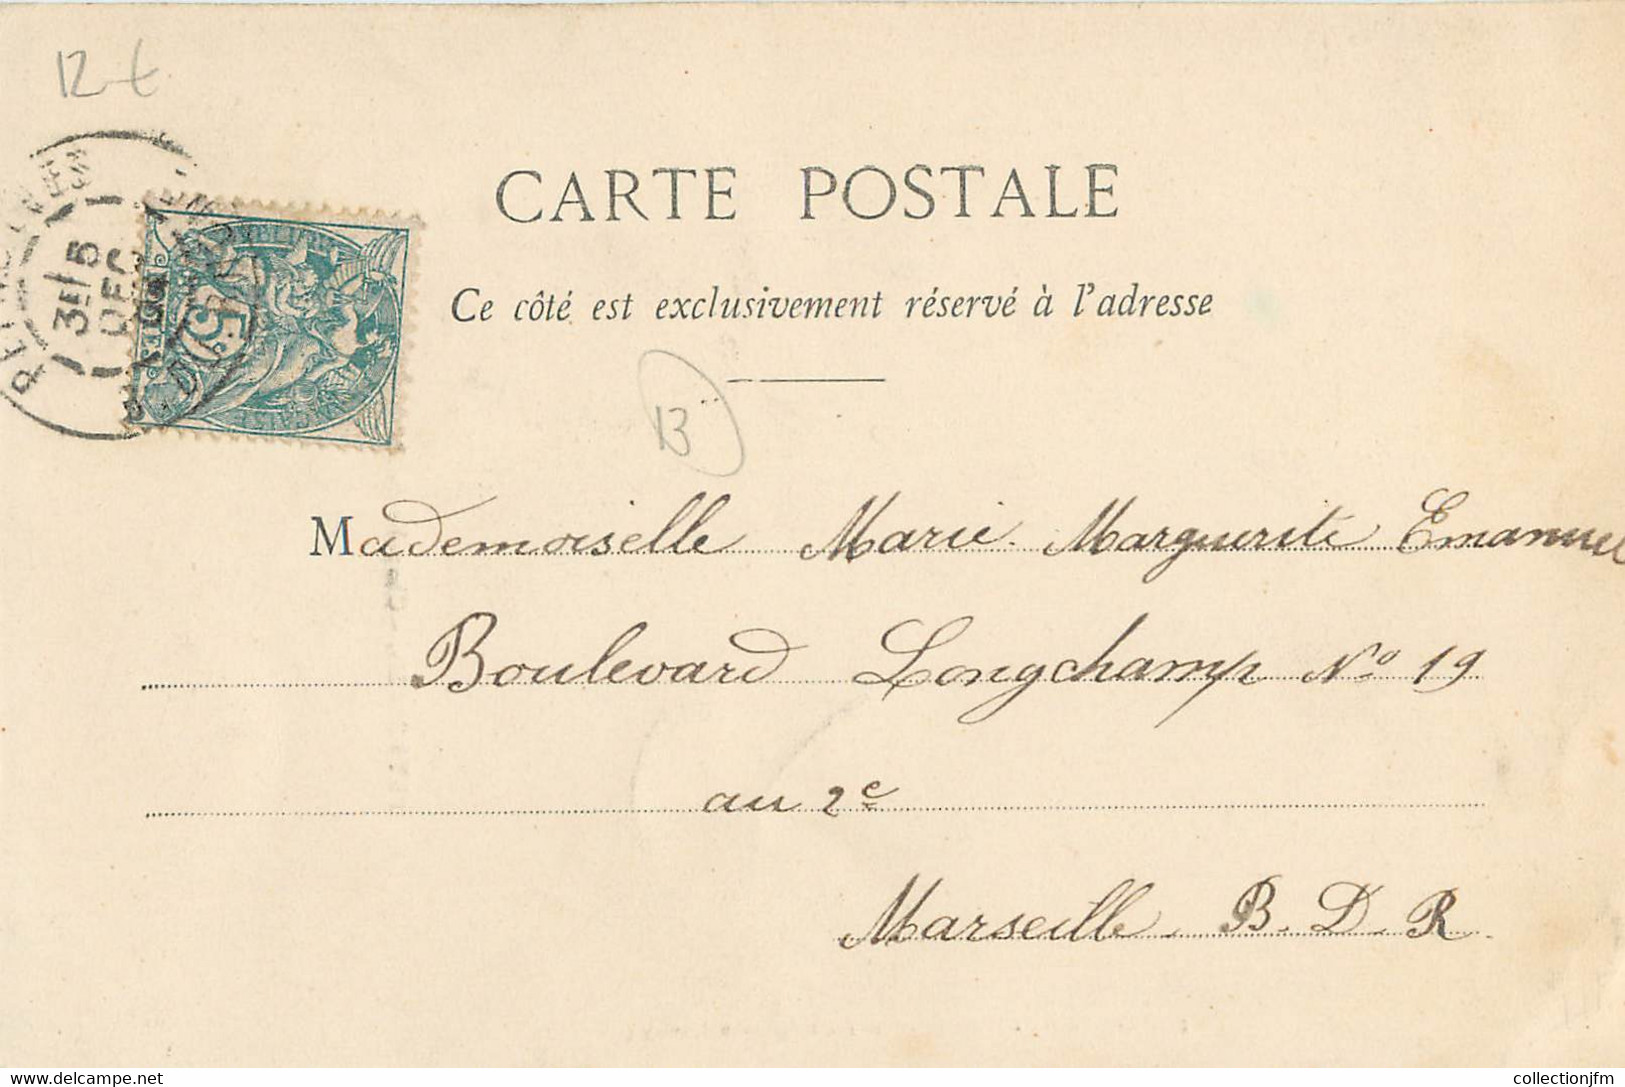 12 €
CARTE POSTALE
Ce côté est exclusivement réservé à l'adresse
13
Mademoiselle Marie Marguerite Emanuel
Boulevard Longchamp Nº 19
au 2e
Marseille. B. D. R
5
www.delcampe.net
collectionjfm